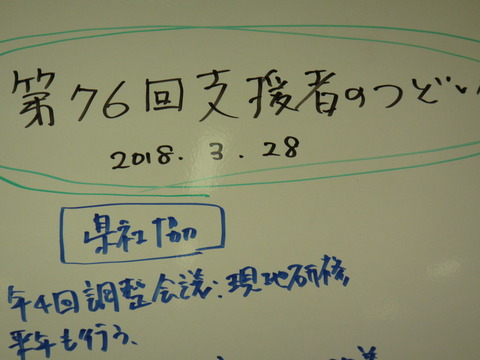 第76回支援者のつどい
2018. 3. 28
県社協
年4回調整会議:現地研修
来年も行う、